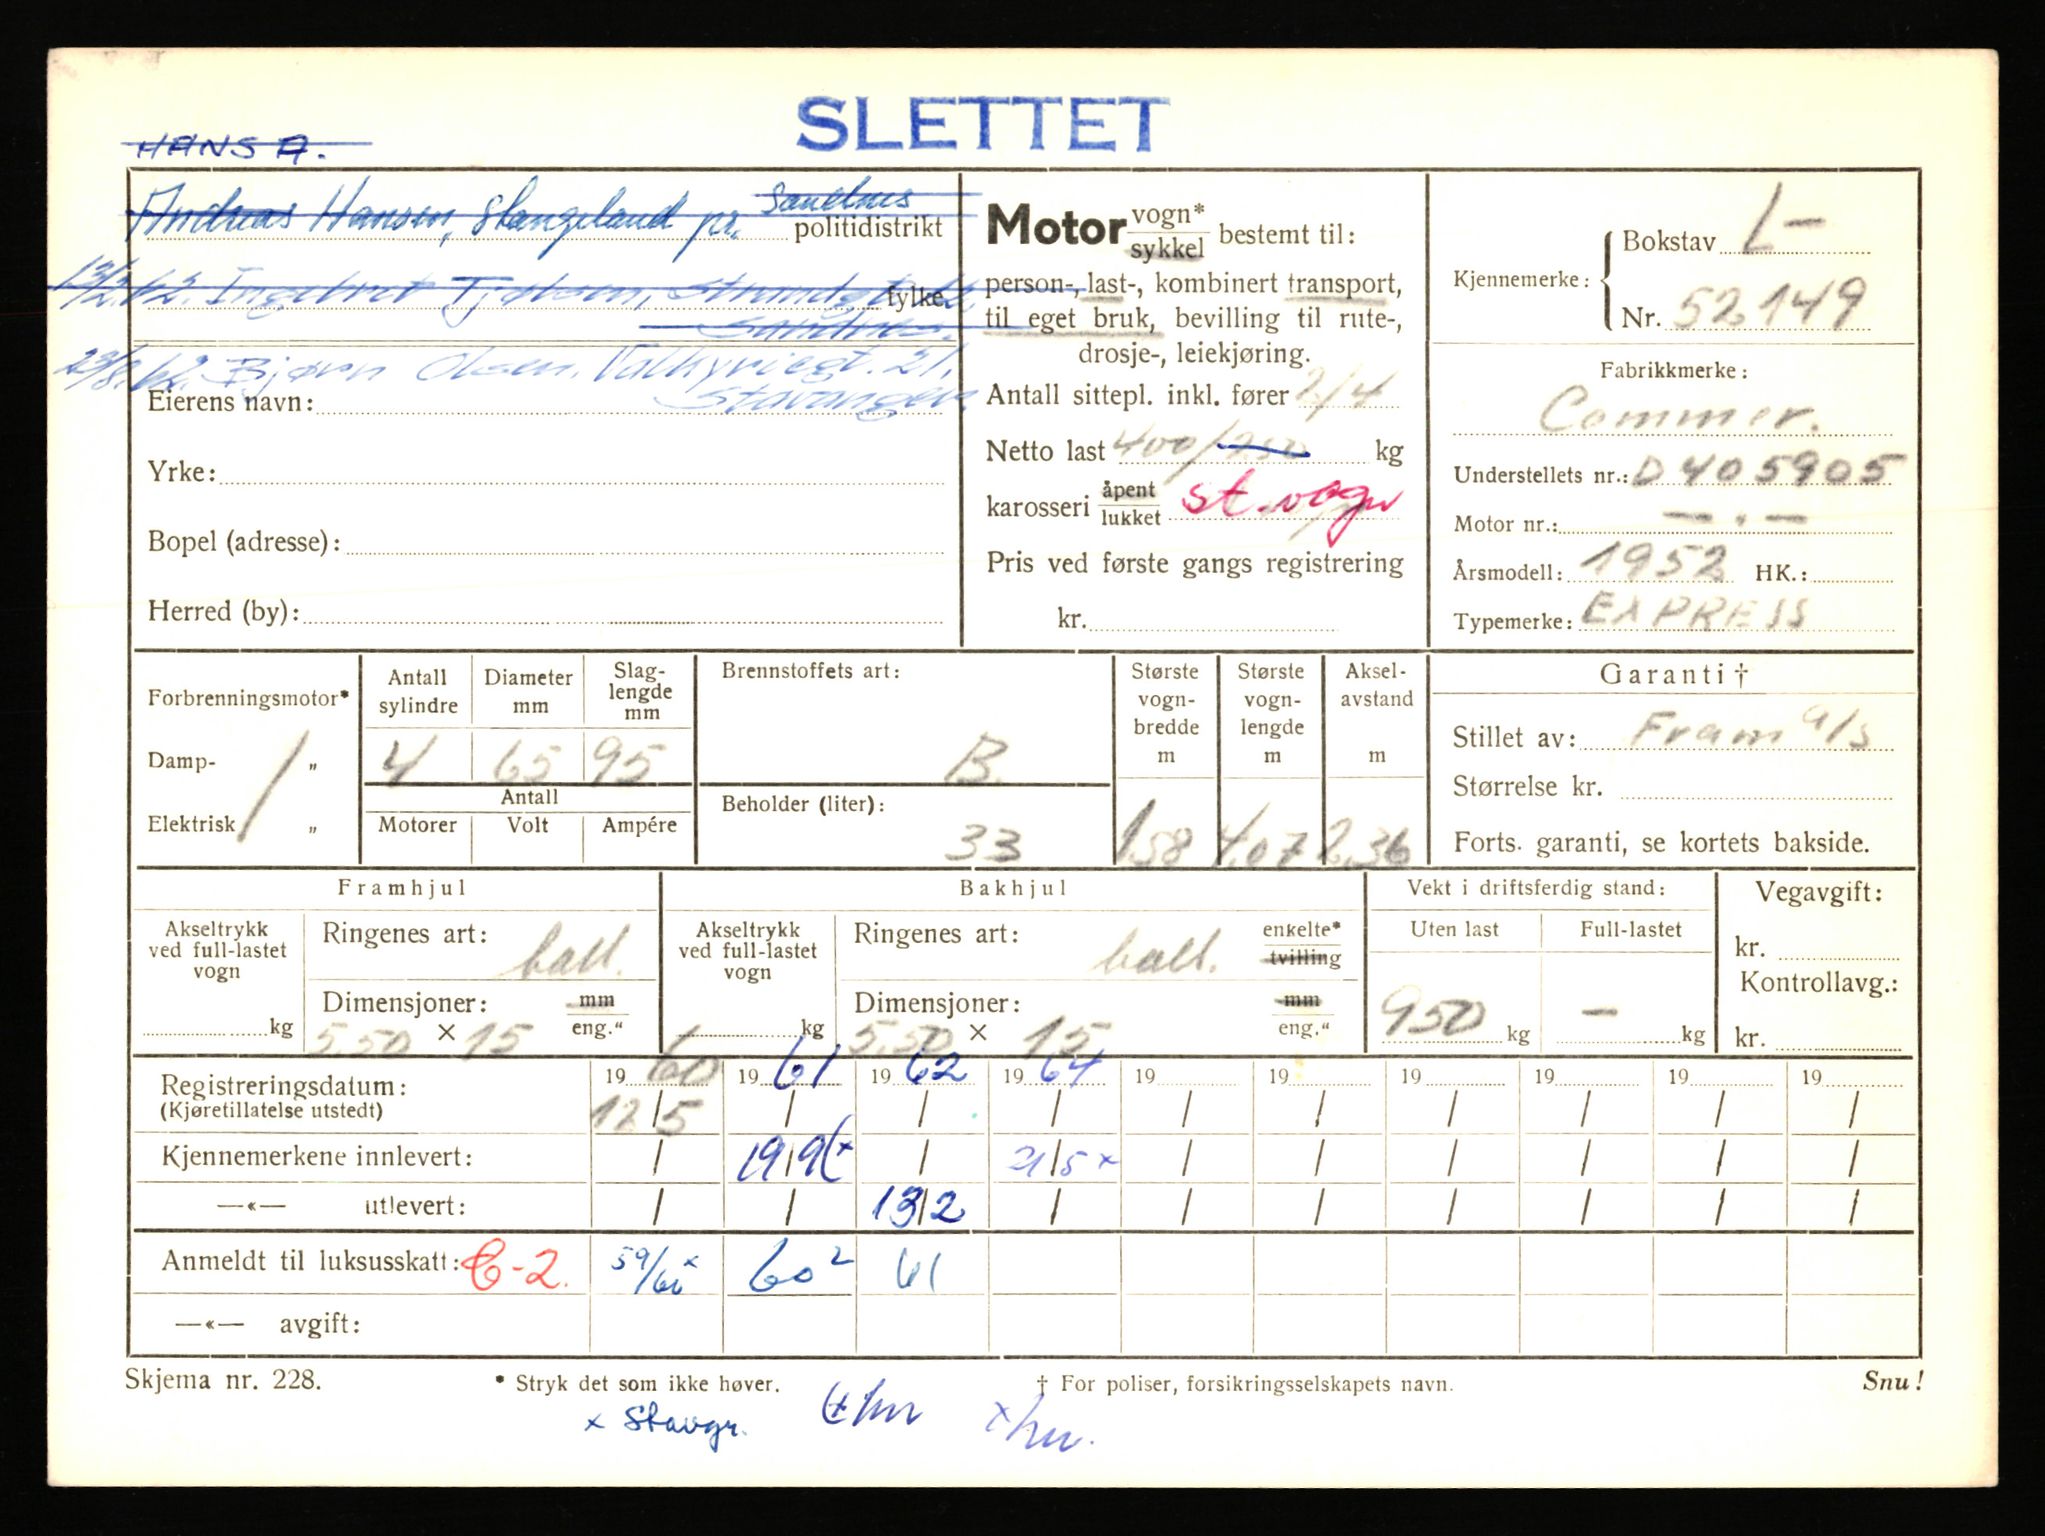 SLETTET
HANS A.
Andreas Hansen, Stangeland pr. Sandnes
politidistrikt
13/2.62. Ingebret Tjelsen, Strandgt.
fylke.
Sandnes.
23/8.62. Bjørn Olsen, Valkyriegt. 21,
Stavanger.
Eierens navn:
Yrke:
Bopel (adresse):
Herred (by):
Motor vogn*/sykkel bestemt til:
person-, last-, kombinert transport,
til eget bruk, bevilling til rute-,
drosje-, leiekjøring.
Antall sittepl. inkl. fører 2/4
Netto last 400/250 kg
karosseri åpent/lukket st.vogn
Pris ved første gangs registrering
kr.
Kjennemerke: Bokstav L-
Nr. 52149
Fabrikkmerke:
Commer.
Understellets nr.: D405905
Motor nr.: — . —
Årsmodell: 1952 HK.:
Typemerke: EXPRESS
Forbrenningsmotor*
Damp- „
Elektrisk „
Antall sylindre Diameter mm Slag-lengde mm
4 65 95
Antall
Motorer Volt Ampére
Brennstoffets art:
B.
Beholder (liter):
33
Største vogn-bredde m Største vogn-lengde m Aksel-avstand m
1.58 4.07 2.36
Garanti †
Stillet av: Fram a/s
Størrelse kr.
Forts. garanti, se kortets bakside.
Framhjul
Akseltrykk ved full-lastet vogn
kg
Ringenes art: ball.
Dimensjoner: mm
5.50 × 15 eng."
Bakhjul
Akseltrykk ved full-lastet vogn
kg
Ringenes art: ball. enkelte* tvilling
Dimensjoner: mm
5.50 × 15 eng."
Vekt i driftsferdig stand:
Uten last Full-lastet
950 kg — kg
Vegavgift:
kr.
Kontrollavg.:
kr.
Registreringsdatum: 1960 1961 1962 1964 19 19 19 19 19 19
(Kjøretillatelse utstedt) 12/5 / / / / / / / / /
Kjennemerkene innlevert: / 19/9 (x / 21/5 x / / / / / /
—«— utlevert: / / 13/2 / / / / / / /
Anmeldt til luksusskatt: C-2. 59/60 x 60 2 61
—«— avgift:
Skjema nr. 228. * Stryk det som ikke høver. † For poliser, forsikringsselskapets navn. Snu!
x Stavgr.